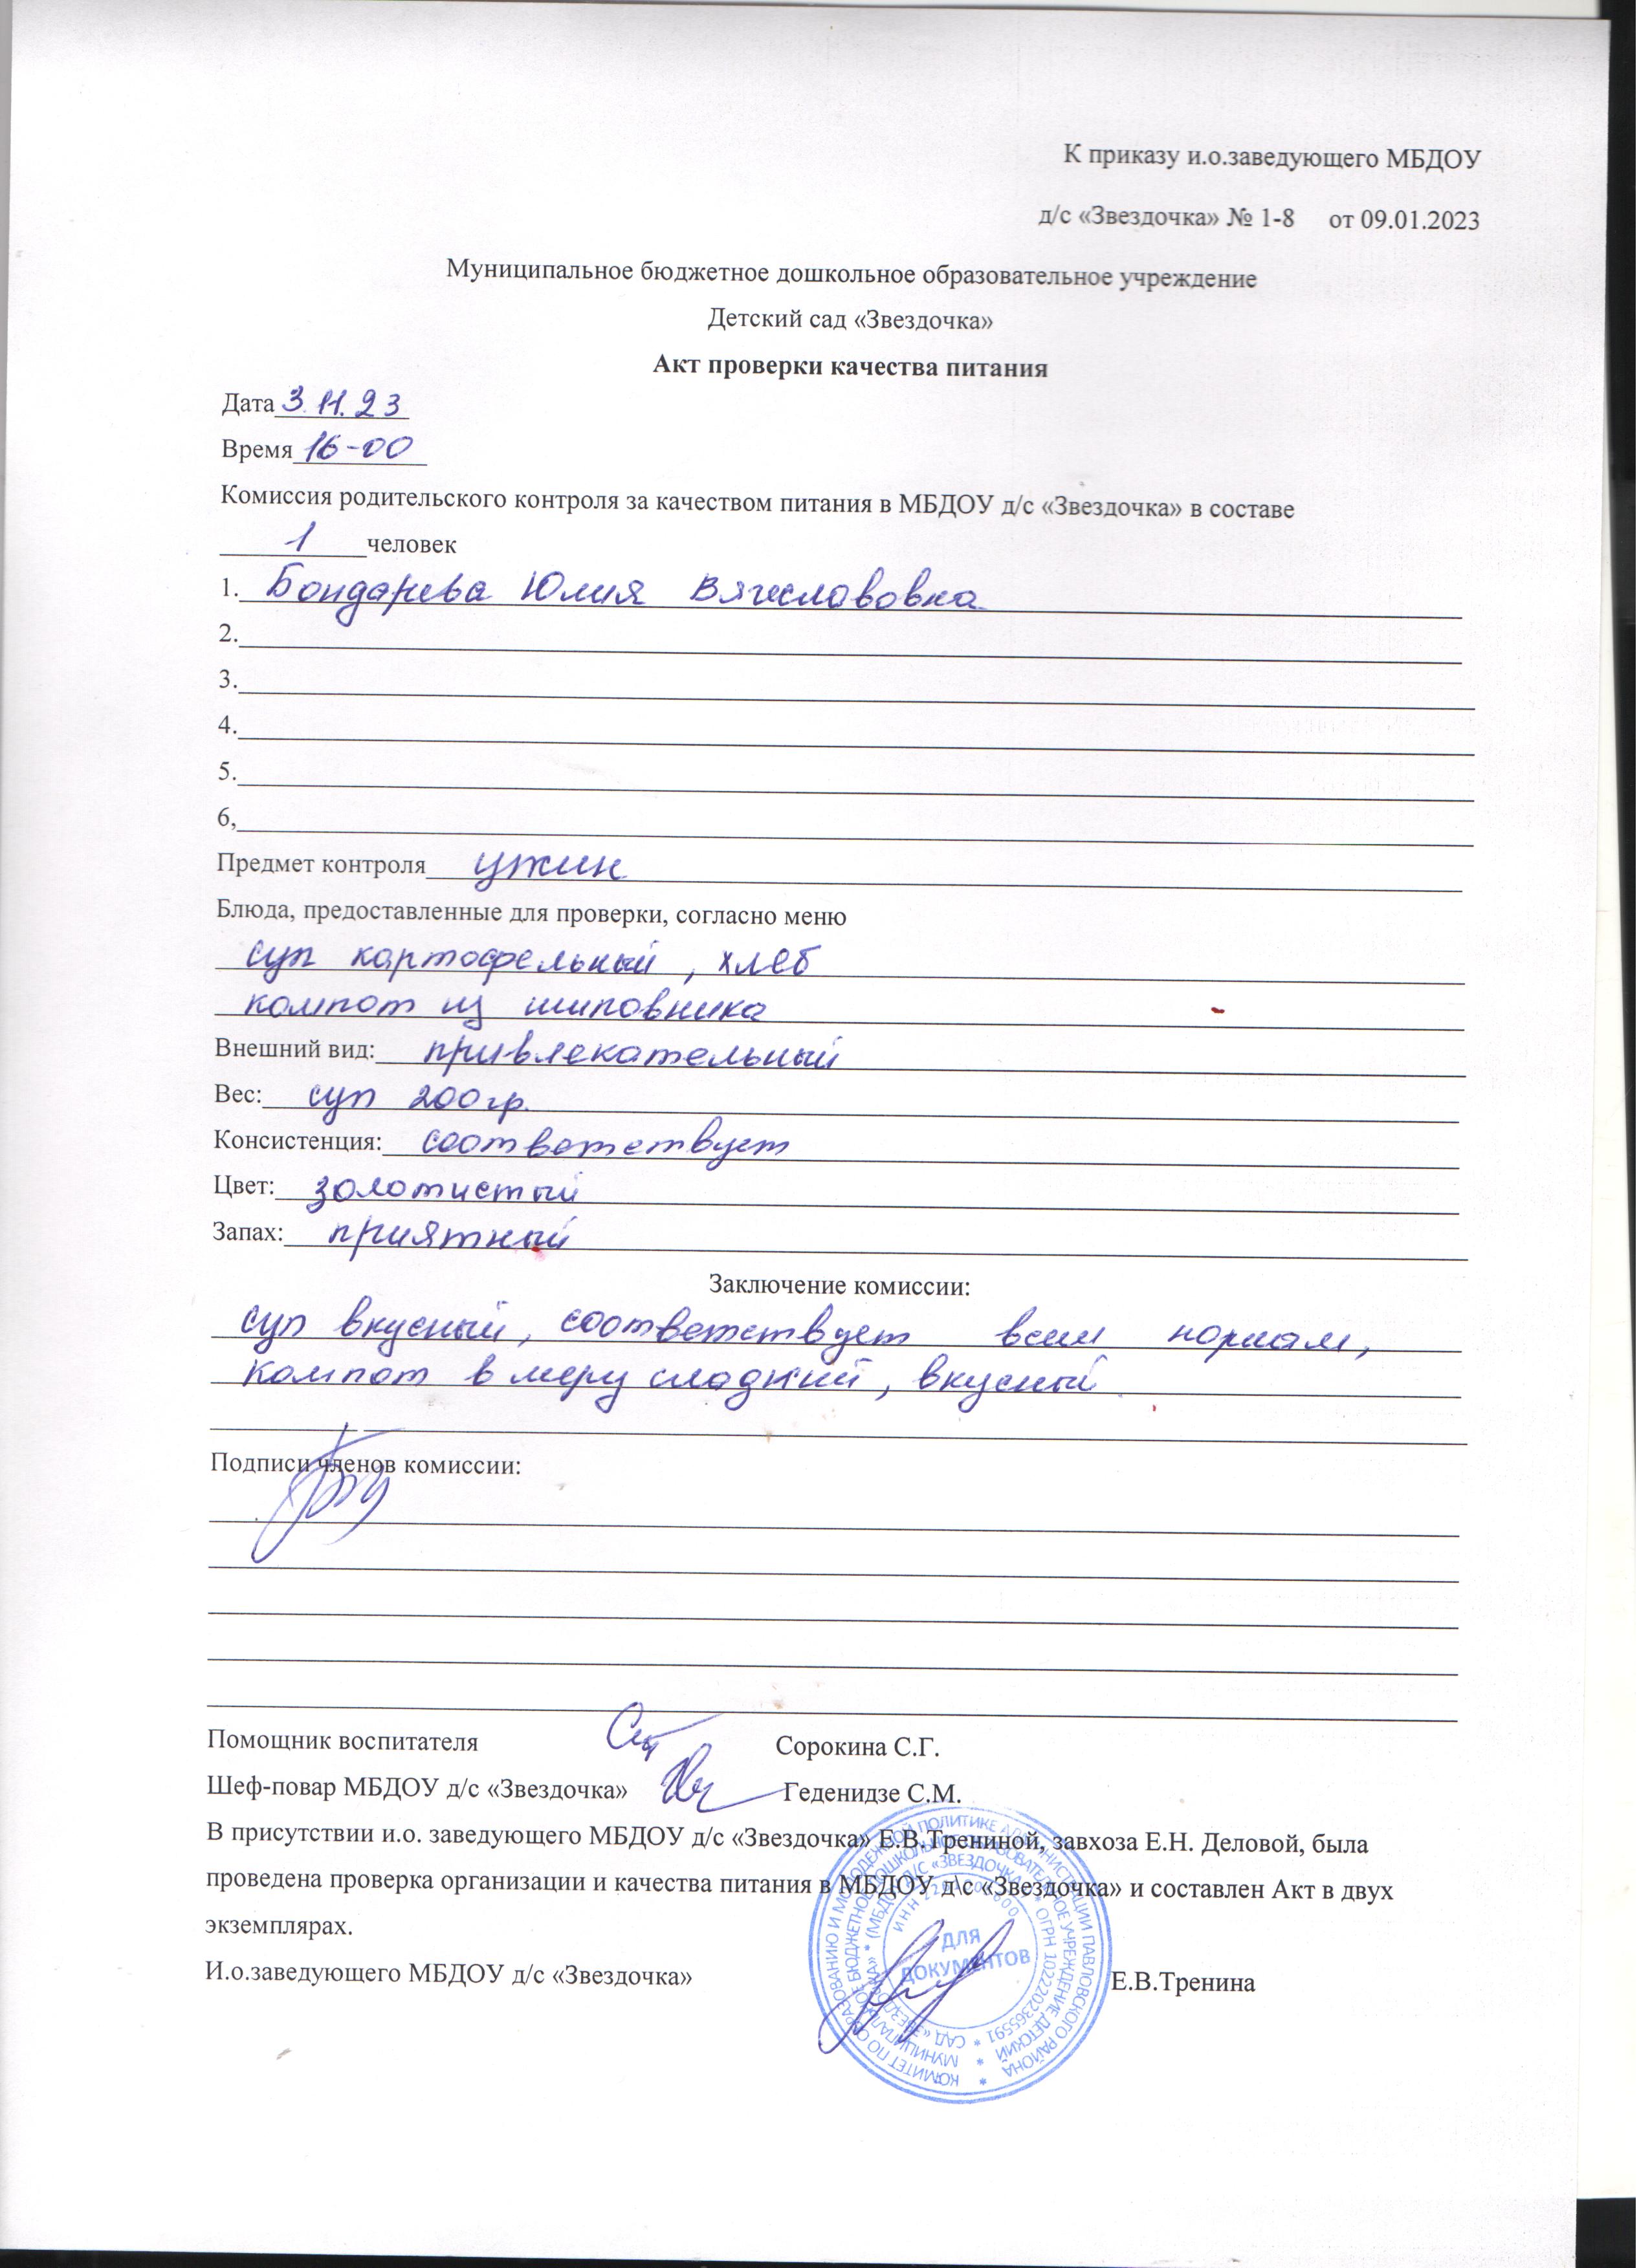 К приказу и.о.заведующего МБДОУ
д/с «Звездочка» № 1-8 от 09.01.2023
Муниципальное бюджетное дошкольное образовательное учреждение
Детский сад «Звездочка»
Акт проверки качества питания
Дата 3.11.23
Время 16-00
Комиссия родительского контроля за качеством питания в МБДОУ д/с «Звездочка» в составе
1 человек
1. Бондарева Юлия Вячеславовна
2.
3.
4.
5.
6,
Предмет контроля ужин
Блюда, предоставленные для проверки, согласно меню
суп картофельный, хлеб
компот из шиповника
Внешний вид: привлекательный
Вес: суп 200гр.
Консистенция: соответствует
Цвет: золотистый
Запах: приятный
Заключение комиссии:
суп вкусный, соответствует всем нормам,
компот в меру сладкий, вкусный.
Подписи членов комиссии:
Помощник воспитателя Сорокина С.Г.
Шеф-повар МБДОУ д/с «Звездочка» Геденидзе С.М.
В присутствии и.о. заведующего МБДОУ д/с «Звездочка» Е.В.Трениной, завхоза Е.Н. Деловой, была
проведена проверка организации и качества питания в МБДОУ д\с «Звездочка» и составлен Акт в двух
экземплярах.
И.о.заведующего МБДОУ д/с «Звездочка» Е.В.Тренина
КОМИТЕТ ПО ОБРАЗОВАНИЮ И МОЛОДЕЖНОЙ ПОЛИТИКЕ АДМИНИСТРАЦИИ ПАВЛОВСКОГО РАЙОНА *
МУНИЦИПАЛЬНОЕ БЮДЖЕТНОЕ ДОШКОЛЬНОЕ ОБРАЗОВАТЕЛЬНОЕ УЧРЕЖДЕНИЕ ДЕТСКИЙ *
САД «ЗВЕЗДОЧКА» * (МБДОУ Д/С «ЗВЕЗДОЧКА») * ОГРН 1022202365591 *
ИНН
ДЛЯ
ДОКУМЕНТОВ